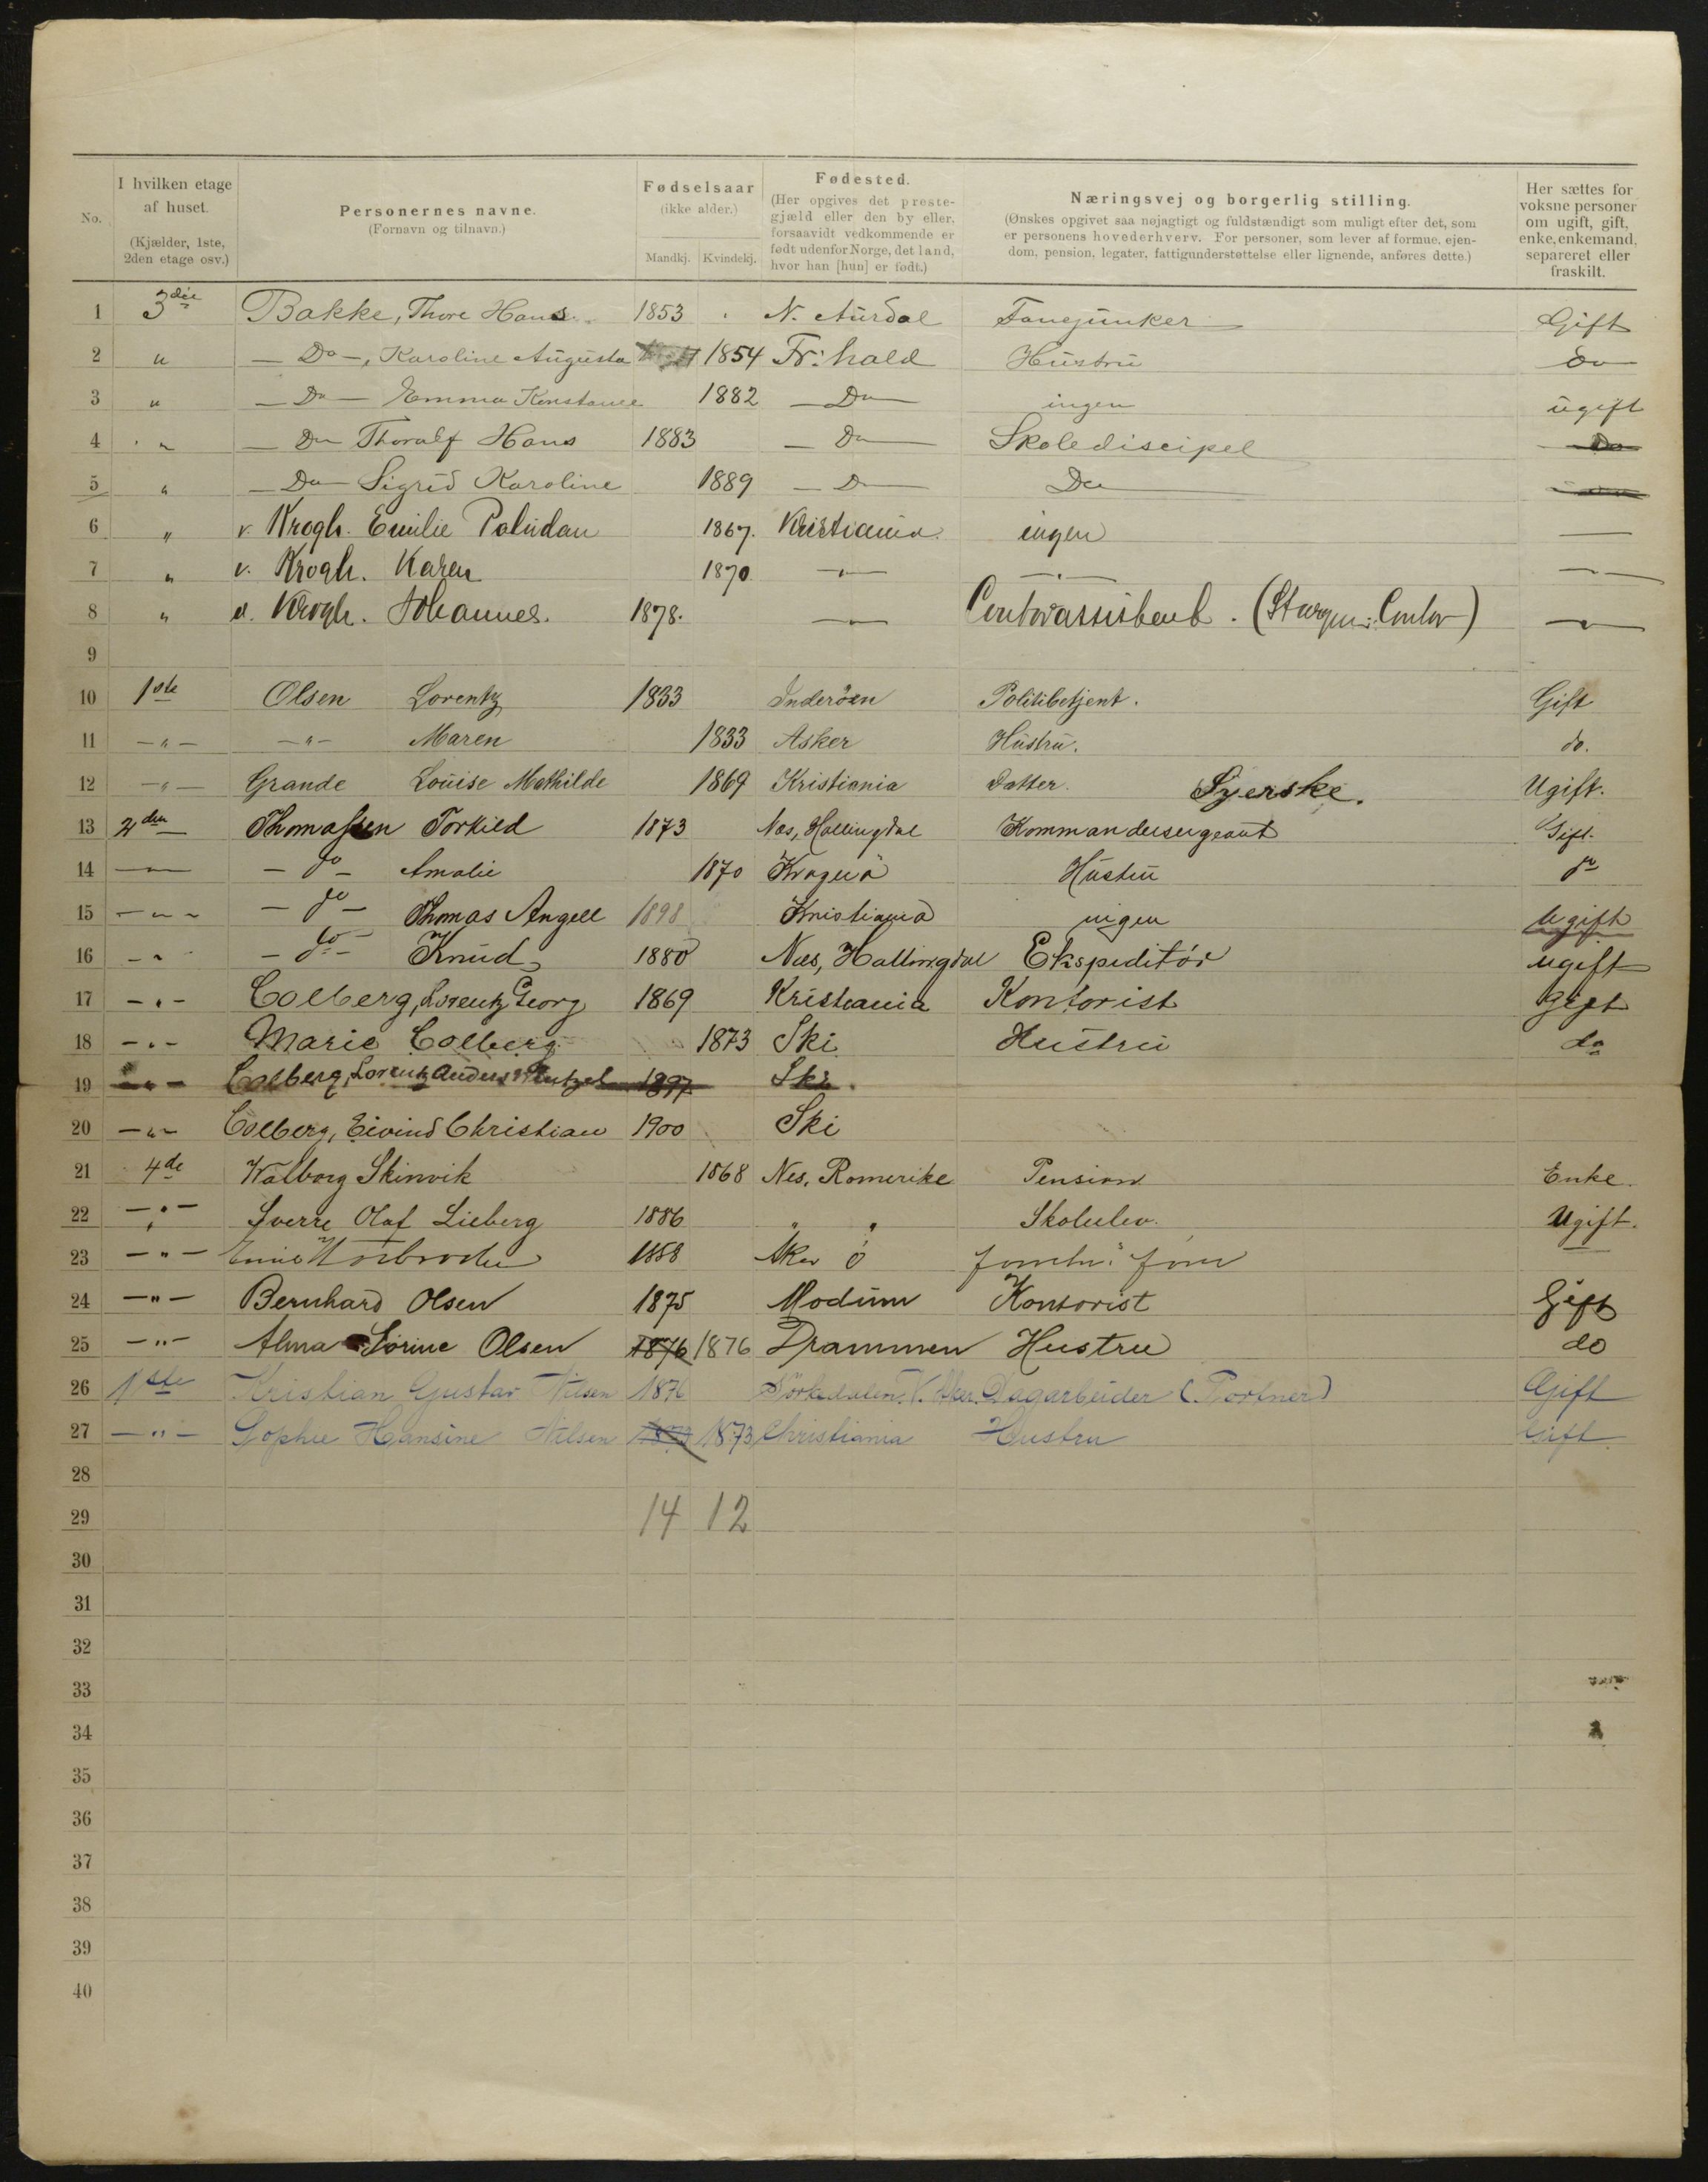 No.
I hvilken etage af huset. (Kjælder, 1ste, 2den etage osv.)
Personernes navne. (Fornavn og tilnavn.)
Fødselsaar (ikke alder.) Mandkj. Kvindekj.
Fødested. (Her opgives det prestegjæld eller den by eller, forsaavidt vedkommende er født udenfor Norge, det land, hvor han [hun] er født.)
Næringsvej og borgerlig stilling. (Ønskes opgivet saa nøjagtigt og fuldstændigt som muligt efter det, som er personens hovederhverv. For personer, som lever af formue, ejendom, pension, legater, fattigunderstøttelse eller lignende, anføres dette.)
Her sættes for voksne personer om ugift, gift, enke, enkemand, separeret eller fraskilt.
1 3die Bakke, Thore Hans 1853 N. Aurdal Fanejunker Gift
2 " — Do —, Karoline Augusta 1854 Fr:hald Hustru do
3 " — Do — Emma Konstance 1882 — Do — ingen ugift
4 " — Do Thoralf Hans 1883 — Do — Skolediscipel Do
5 " — Do — Sigrid Karoline 1889 — D — Do
6 " v. Krogh. Emilie Paludan 1867. Kristiania ingen —
7 " v. Krogh. Karen 1870 — " — — " — — " —
8 " v. Krogh. Johannes. 1878. — " — Contorassistent. ( Contor) — " —
9
10 1ste Olsen Lorentz 1833 Inderöen Politibetjent. Gift
11 — " — — " — Maren 1833 Asker Hustru. do.
12 — " — Grande Louise Mathilde 1869 Kristiania Datter. Syerske. Ugift.
13 2den Thomassen Torkild 1873 Næs, Hallingdal Kommandersergeant Gift.
14 — " — — do — Amalie 1870 Kragerö Hustru do
15 — " — — do — Thomas Angell 1898 Kristiania ingen Ugift
16 — " — do — Knud 1880 Næs, Hallingdal Ekspeditör ugift
17 — " — Colberg, Lorentz Georg 1869 Kristiania Kontorist gift
18 — " — Marie Colberg 1873 Ski Hustru do
19 — " — Colberg, Lorentz Anders 1897 Ski.
20 — " — Colberg, Eivind Christian 1900 Ski
21 4de Walborg Skinvik 1868 Nes, Romerike Pension Enke.
22 — " — Sverre Olaf Lieberg 1886 " " Skoleelev. Ugift.
23 — " — 1858
24 — " — Bernhard Olsen 1875 Modum Kontorist Gift
25 — " — Alma Sörine Olsen 1876 1876 Drammen Hustru do
26 1ste Kristian Gustav Nilsen 1876 Sörkedalen. V. Aker. Dagarbeider (Portner) Gift
27 — " — Sophie Hansine Nilsen 1873 1873 Christiania Hustru Gift
28
29 14 12
30
31
32
33
34
35
36
37
38
39
40